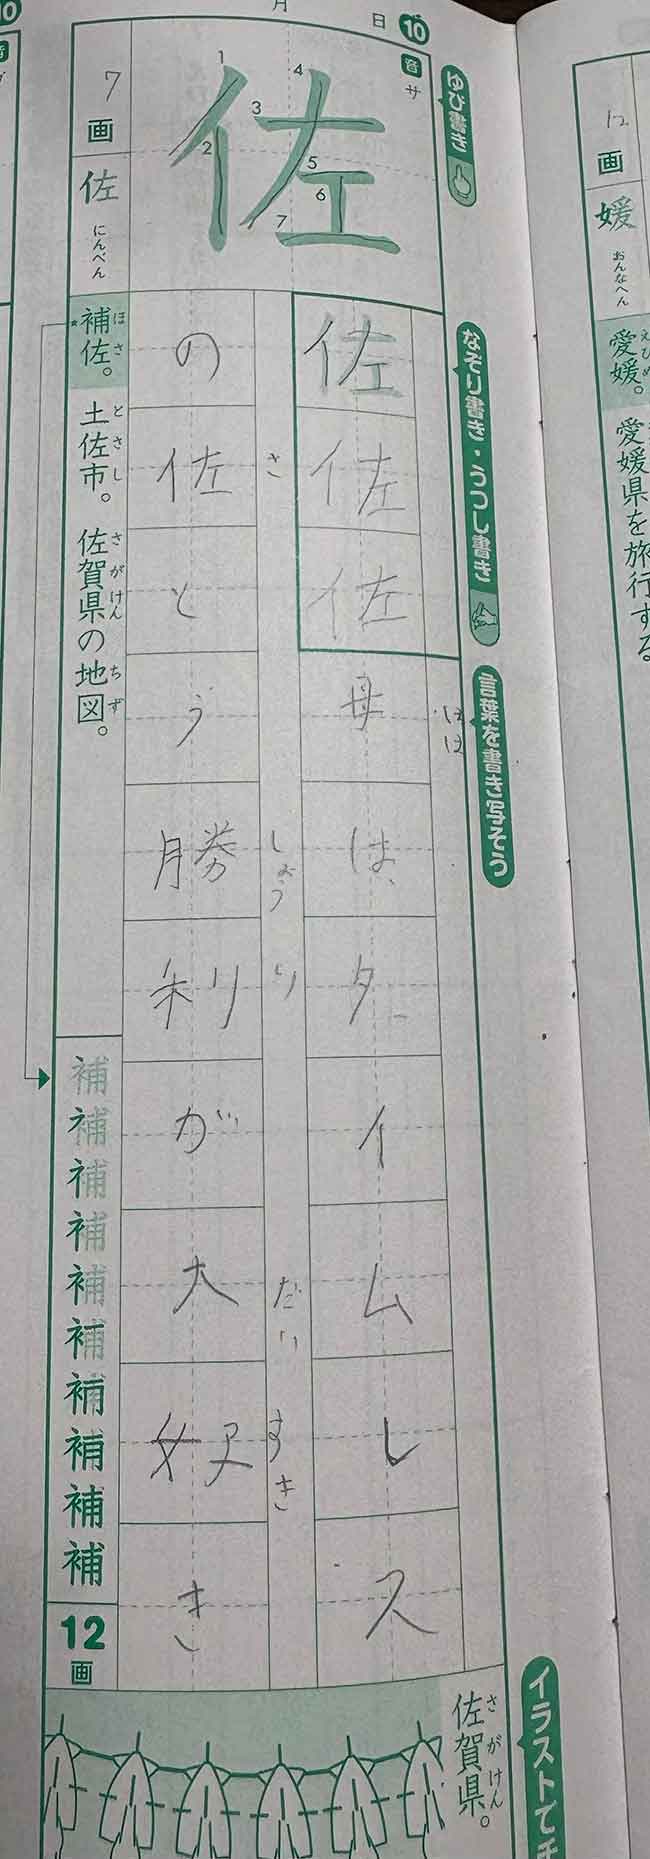 月 日 10
音 サ
ゆび書き
なぞり書き・うつし書き
言葉を書き写そう
イラストで
佐
1 2 3 4 5 6 7
佐
佐
佐
母は、タイムレス
はは
の佐とう勝利が大好き
さ しょう り だい すき
7画
佐 にんべん
補佐。土佐市。佐賀県の地図。
ほさ とさし さがけん ちず
補補補補補補補補補補
12画
佐賀県。
さがけん
12画
媛 おんなへん
愛媛。愛媛県を旅行する
えひめ
10
音